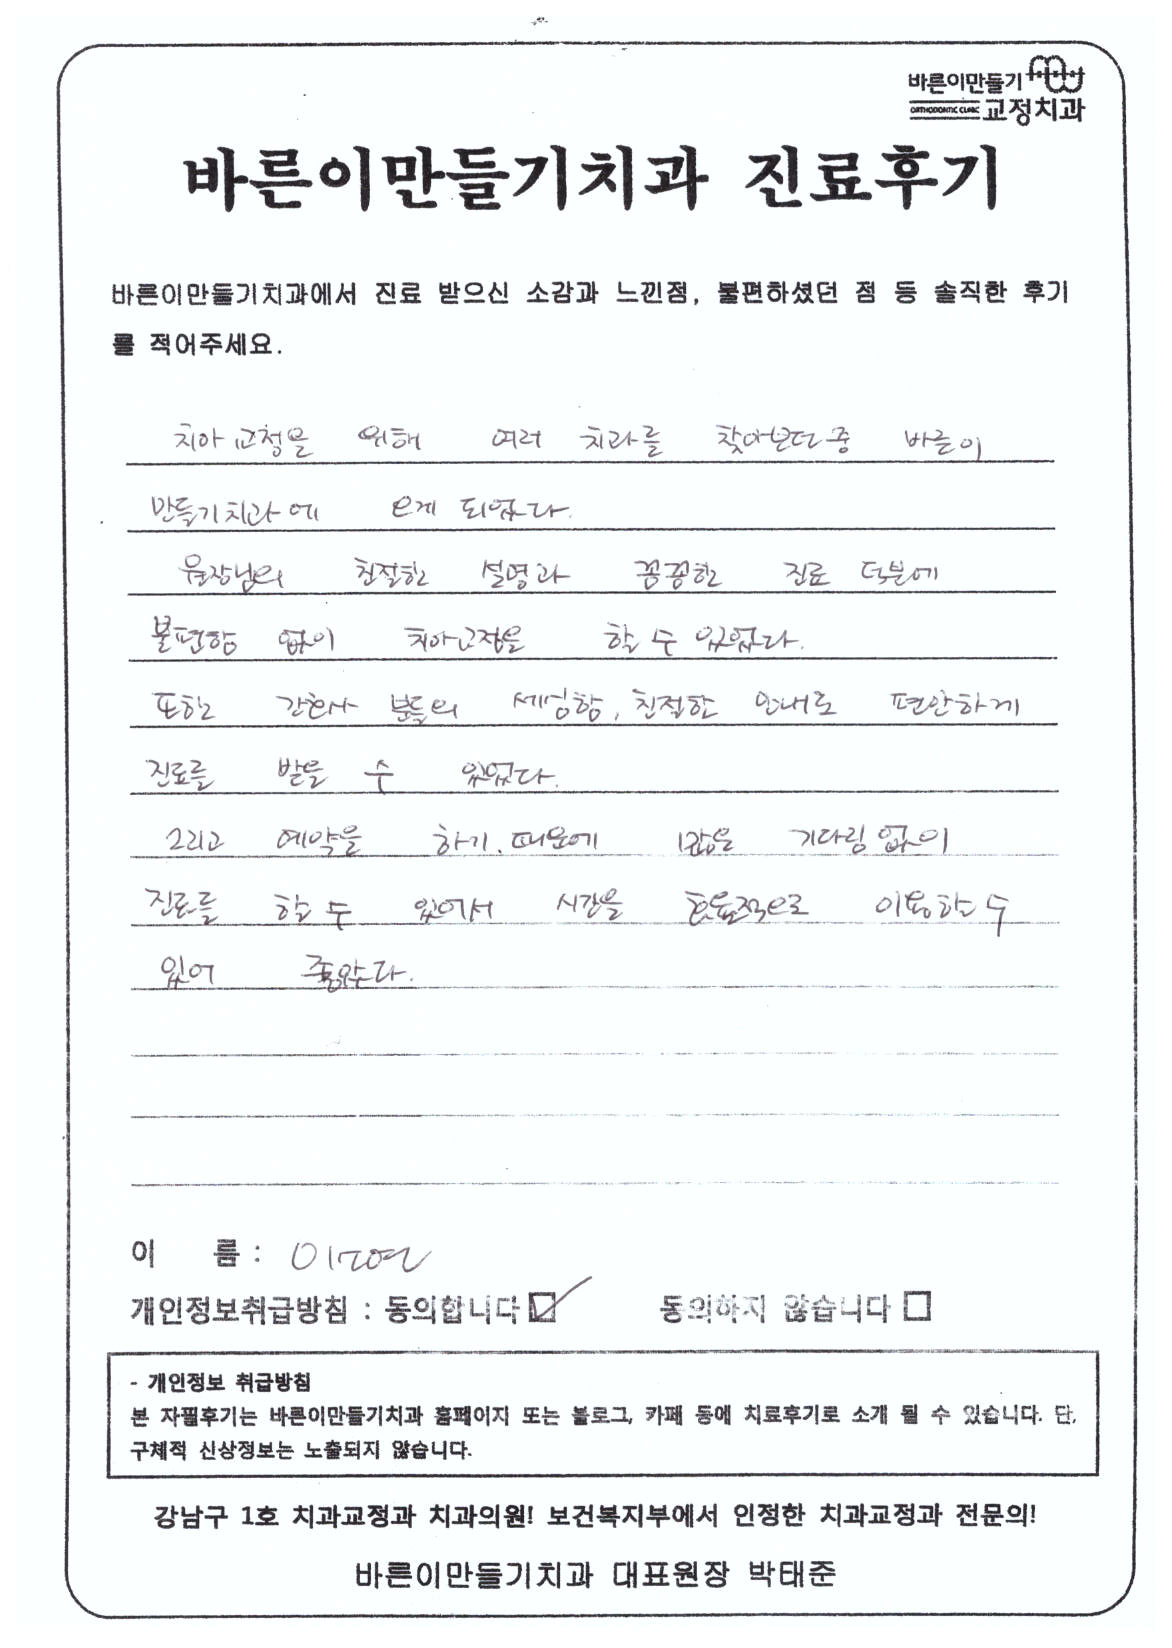 바른이만들기
ORTHODONTIC CLINIC 교정치과
바른이만들기치과 진료후기
바른이만들기치과에서 진료 받으신 소감과 느낀점, 불편하셨던 점 등 솔직한 후기
를 적어주세요.
치아교정을 위해 여러 치과를 찾아보던 중 바른이
만들기치과에 오게 되었다.
원장님의 친절한 설명과 꼼꼼한 진료 덕분에
불편함 없이 치아교정을 할 수 있었다.
또한 간호사 분들의 세심함, 친절한 안내로 편안하게
진료를 받을 수 있었다.
그리고 예약을 하기 때문에 많은 기다림 없이
진료를 할 수 있어서 시간을 효율적으로 이용할 수
있어 좋았다.
이 름 :
개인정보취급방침 : 동의합니다 동의하지 않습니다
- 개인정보 취급방침
본 자필후기는 바른이만들기치과 홈페이지 또는 블로그, 카페 등에 치료후기로 소개 될 수 있습니다. 단,
구체적 신상정보는 노출되지 않습니다.
강남구 1호 치과교정과 치과의원! 보건복지부에서 인정한 치과교정과 전문의!
바른이만들기치과 대표원장 박태준